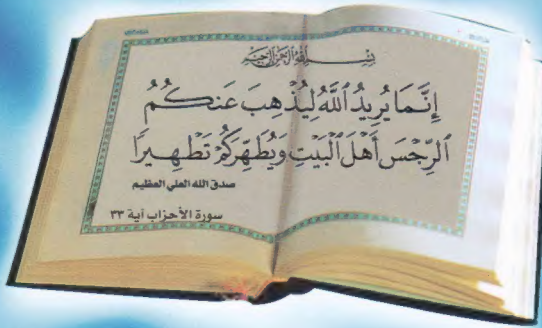 بِسْمِ اللَّهِ الرَّحْمَٰنِ الرَّحِيمِ
إِنَّمَا يُرِيدُ اللَّهُ لِيُذْهِبَ عَنكُمُ
الرِّجْسَ أَهْلَ الْبَيْتِ وَيُطَهِّرَكُمْ تَطْهِيرًا
صدق الله العلي العظيم
سورة الأحزاب آية ٣٣